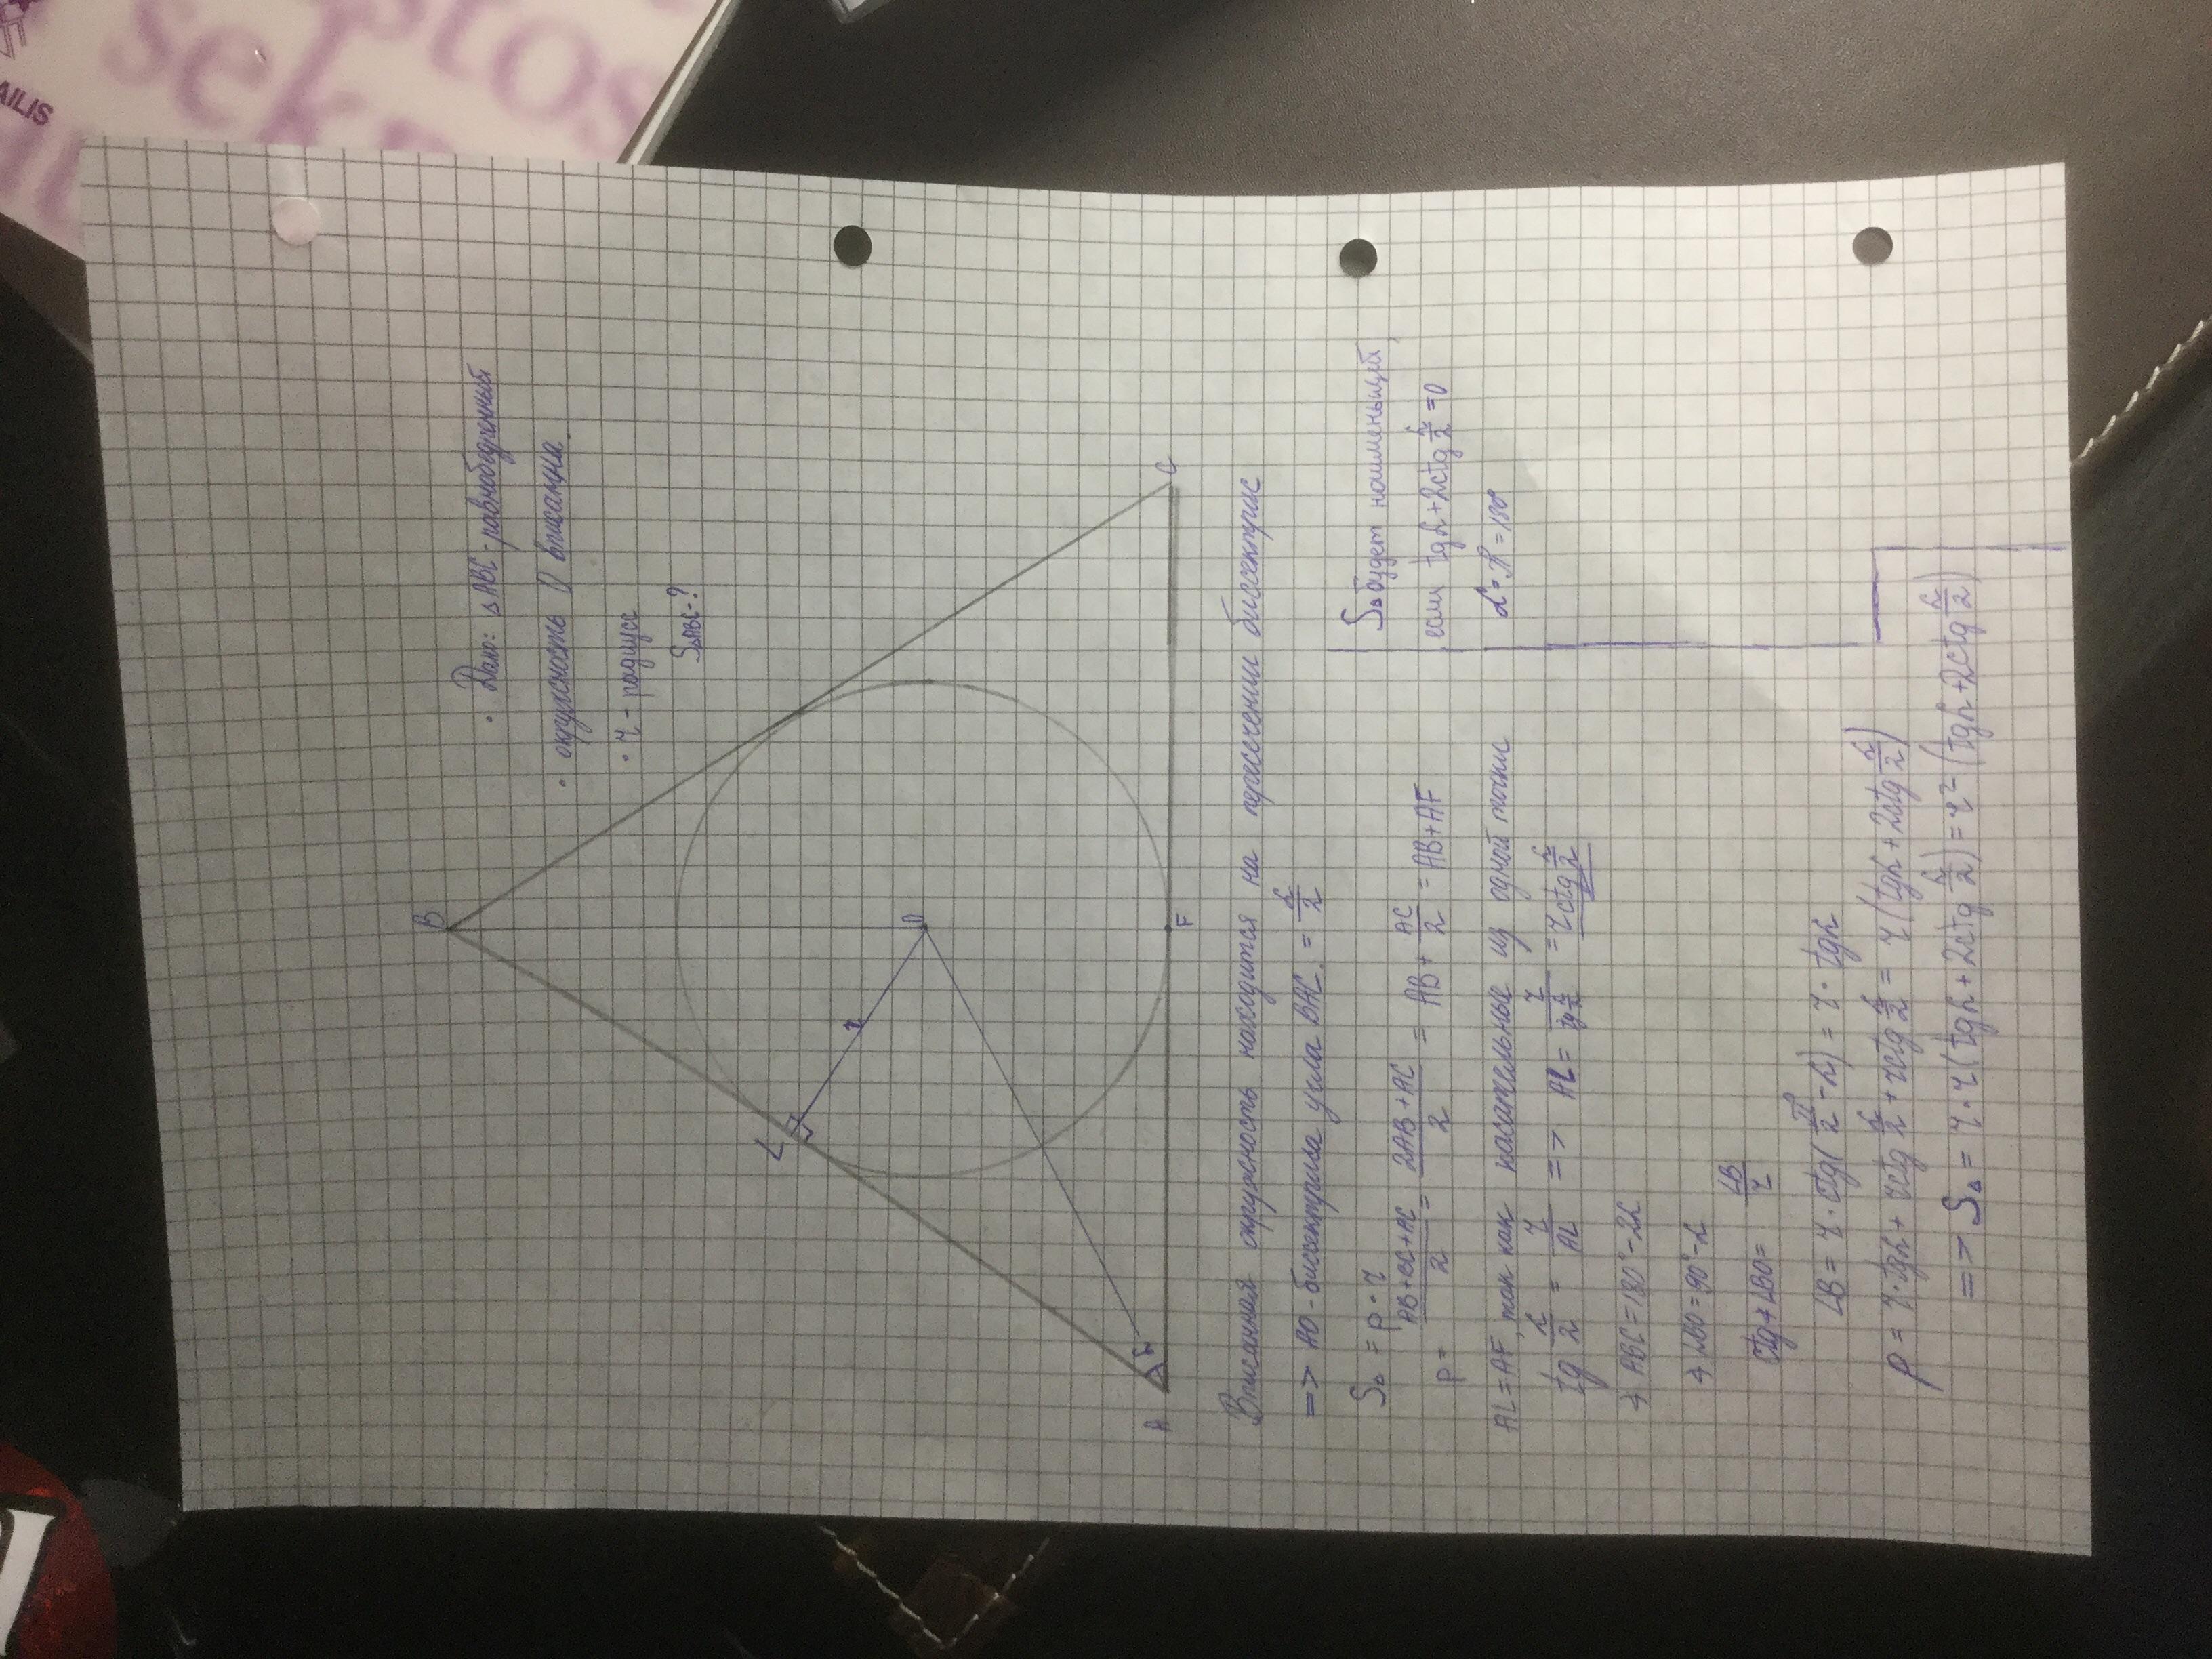 • Дано: △ABC - равнобедренный
• окружность O вписана.
• r - радиус
S△ABC-?
B
L
r
O
A
α
F
C
Вписанной окружность находится на пересечении биссектрис
=> AO - биссектриса угла BAC. = α/2
S△ = p • r
p = (AB+BC+AC)/2 = (2AB+AC)/2 = AB + AC/2 = AB+AF
AL = AF, так как касательные из одной точки
tg α/2 = r/AL => AL = r/(tg α/2) = r ctg α/2
∠ABC = 180° - 2α
∠LBO = 90° - α
ctg ∠LBO = LB/r
LB = r • ctg(π/2 - α) = r • tgα
p = r • tgα + r ctg α/2 + r ctg α/2 = r (tgα + 2ctg α/2)
=> S△ = r • r (tgα + 2ctg α/2) = r² (tgα + 2ctg α/2)
S△ будет наименьшей,
если tgα + 2ctg α/2 = 0
α = π = 180°
AILIS